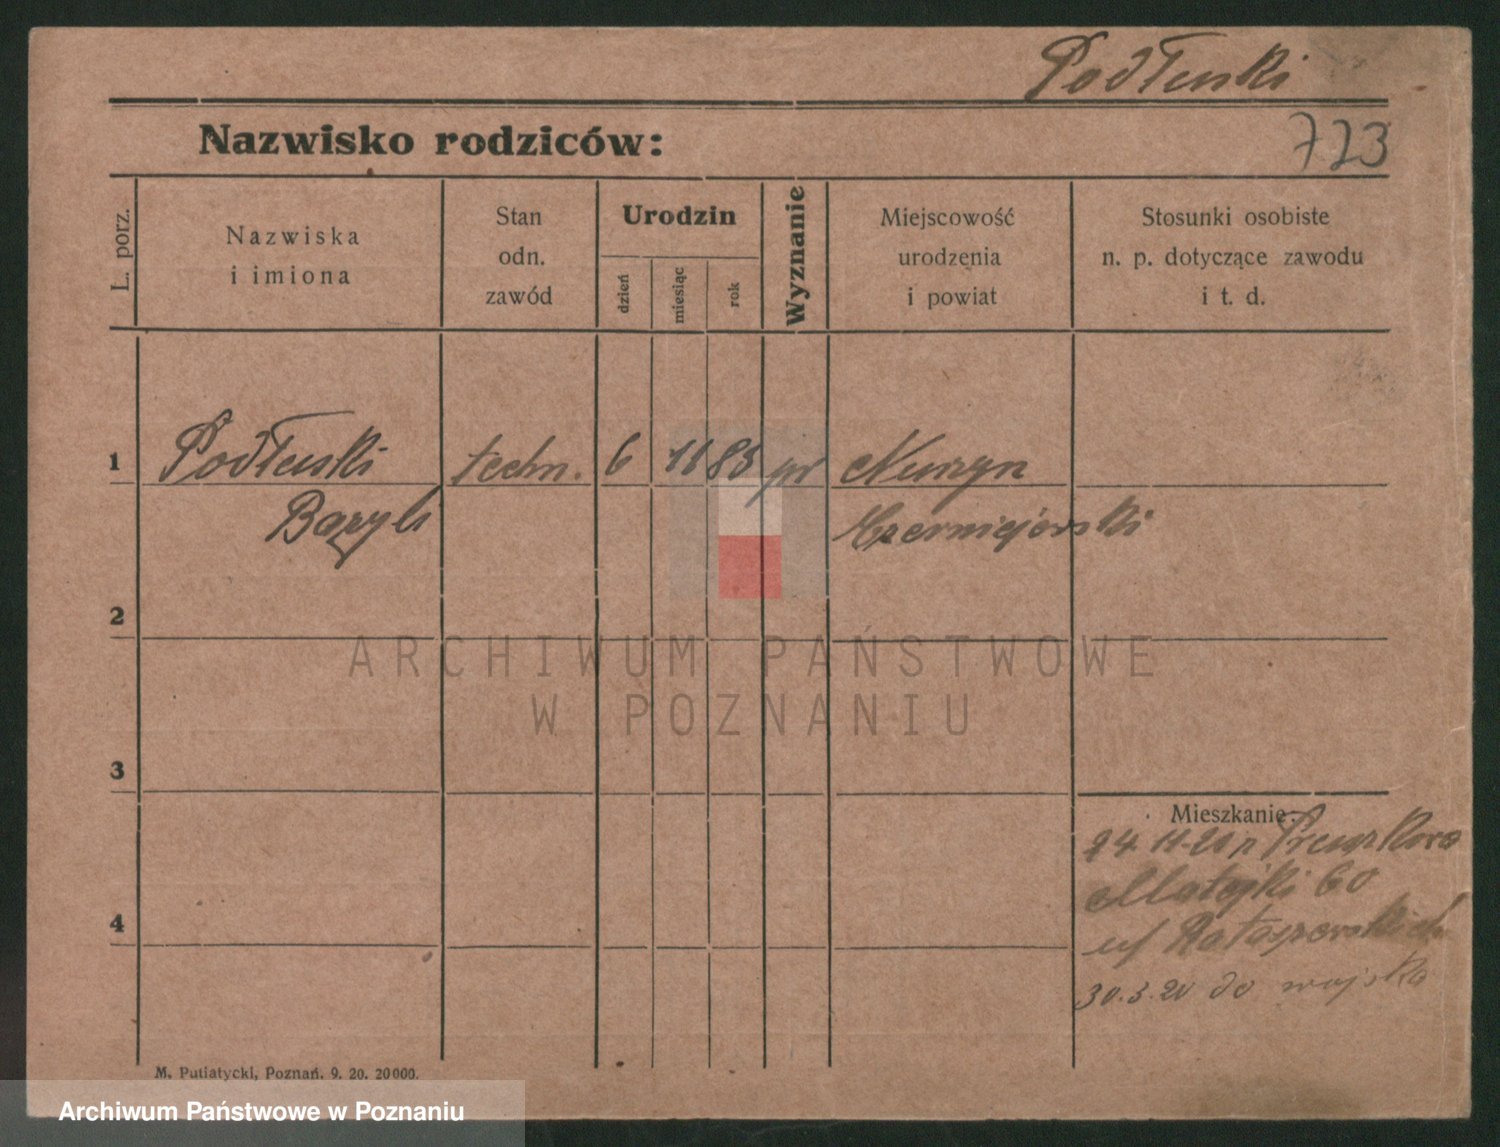 Podłuski
Nazwisko rodziców:
723
L. porz.
Nazwiska
i imiona
Stan
odn.
zawód
Urodzin
dzień
miesiąc
rok
Wyznanie
Miejscowość
urodzenia
i powiat
Stosunki osobiste
n. p. dotyczące zawodu
i t. d.
1 Podłuski techn. 6 11 88 pr
Bazyli
2
3
4
Mieszkanie:
Matejki 60
30.3.20 do wojska
M. Putiatycki, Poznań. 9. 20. 20000.
ARCHIWUM PAŃSTWOWE
W POZNANIU
Archiwum Państwowe w Poznaniu